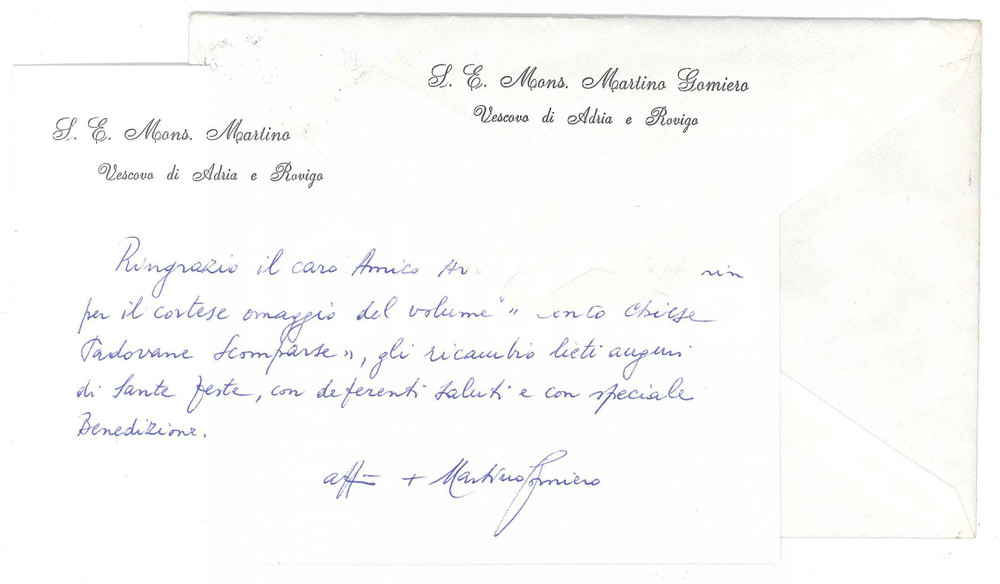 S. E. Mons. Martino Gomiero
Vescovo di Adria e Rovigo
S. E. Mons. Martino
Vescovo di Adria e Rovigo
Ringrazio il caro Amico
per il cortese omaggio del volume "
Chiese
Padovane Scomparse", gli ricambio lieti auguri
di Sante feste, con deferenti saluti e con speciale
Benedizione.
aff + Martino Gomiero